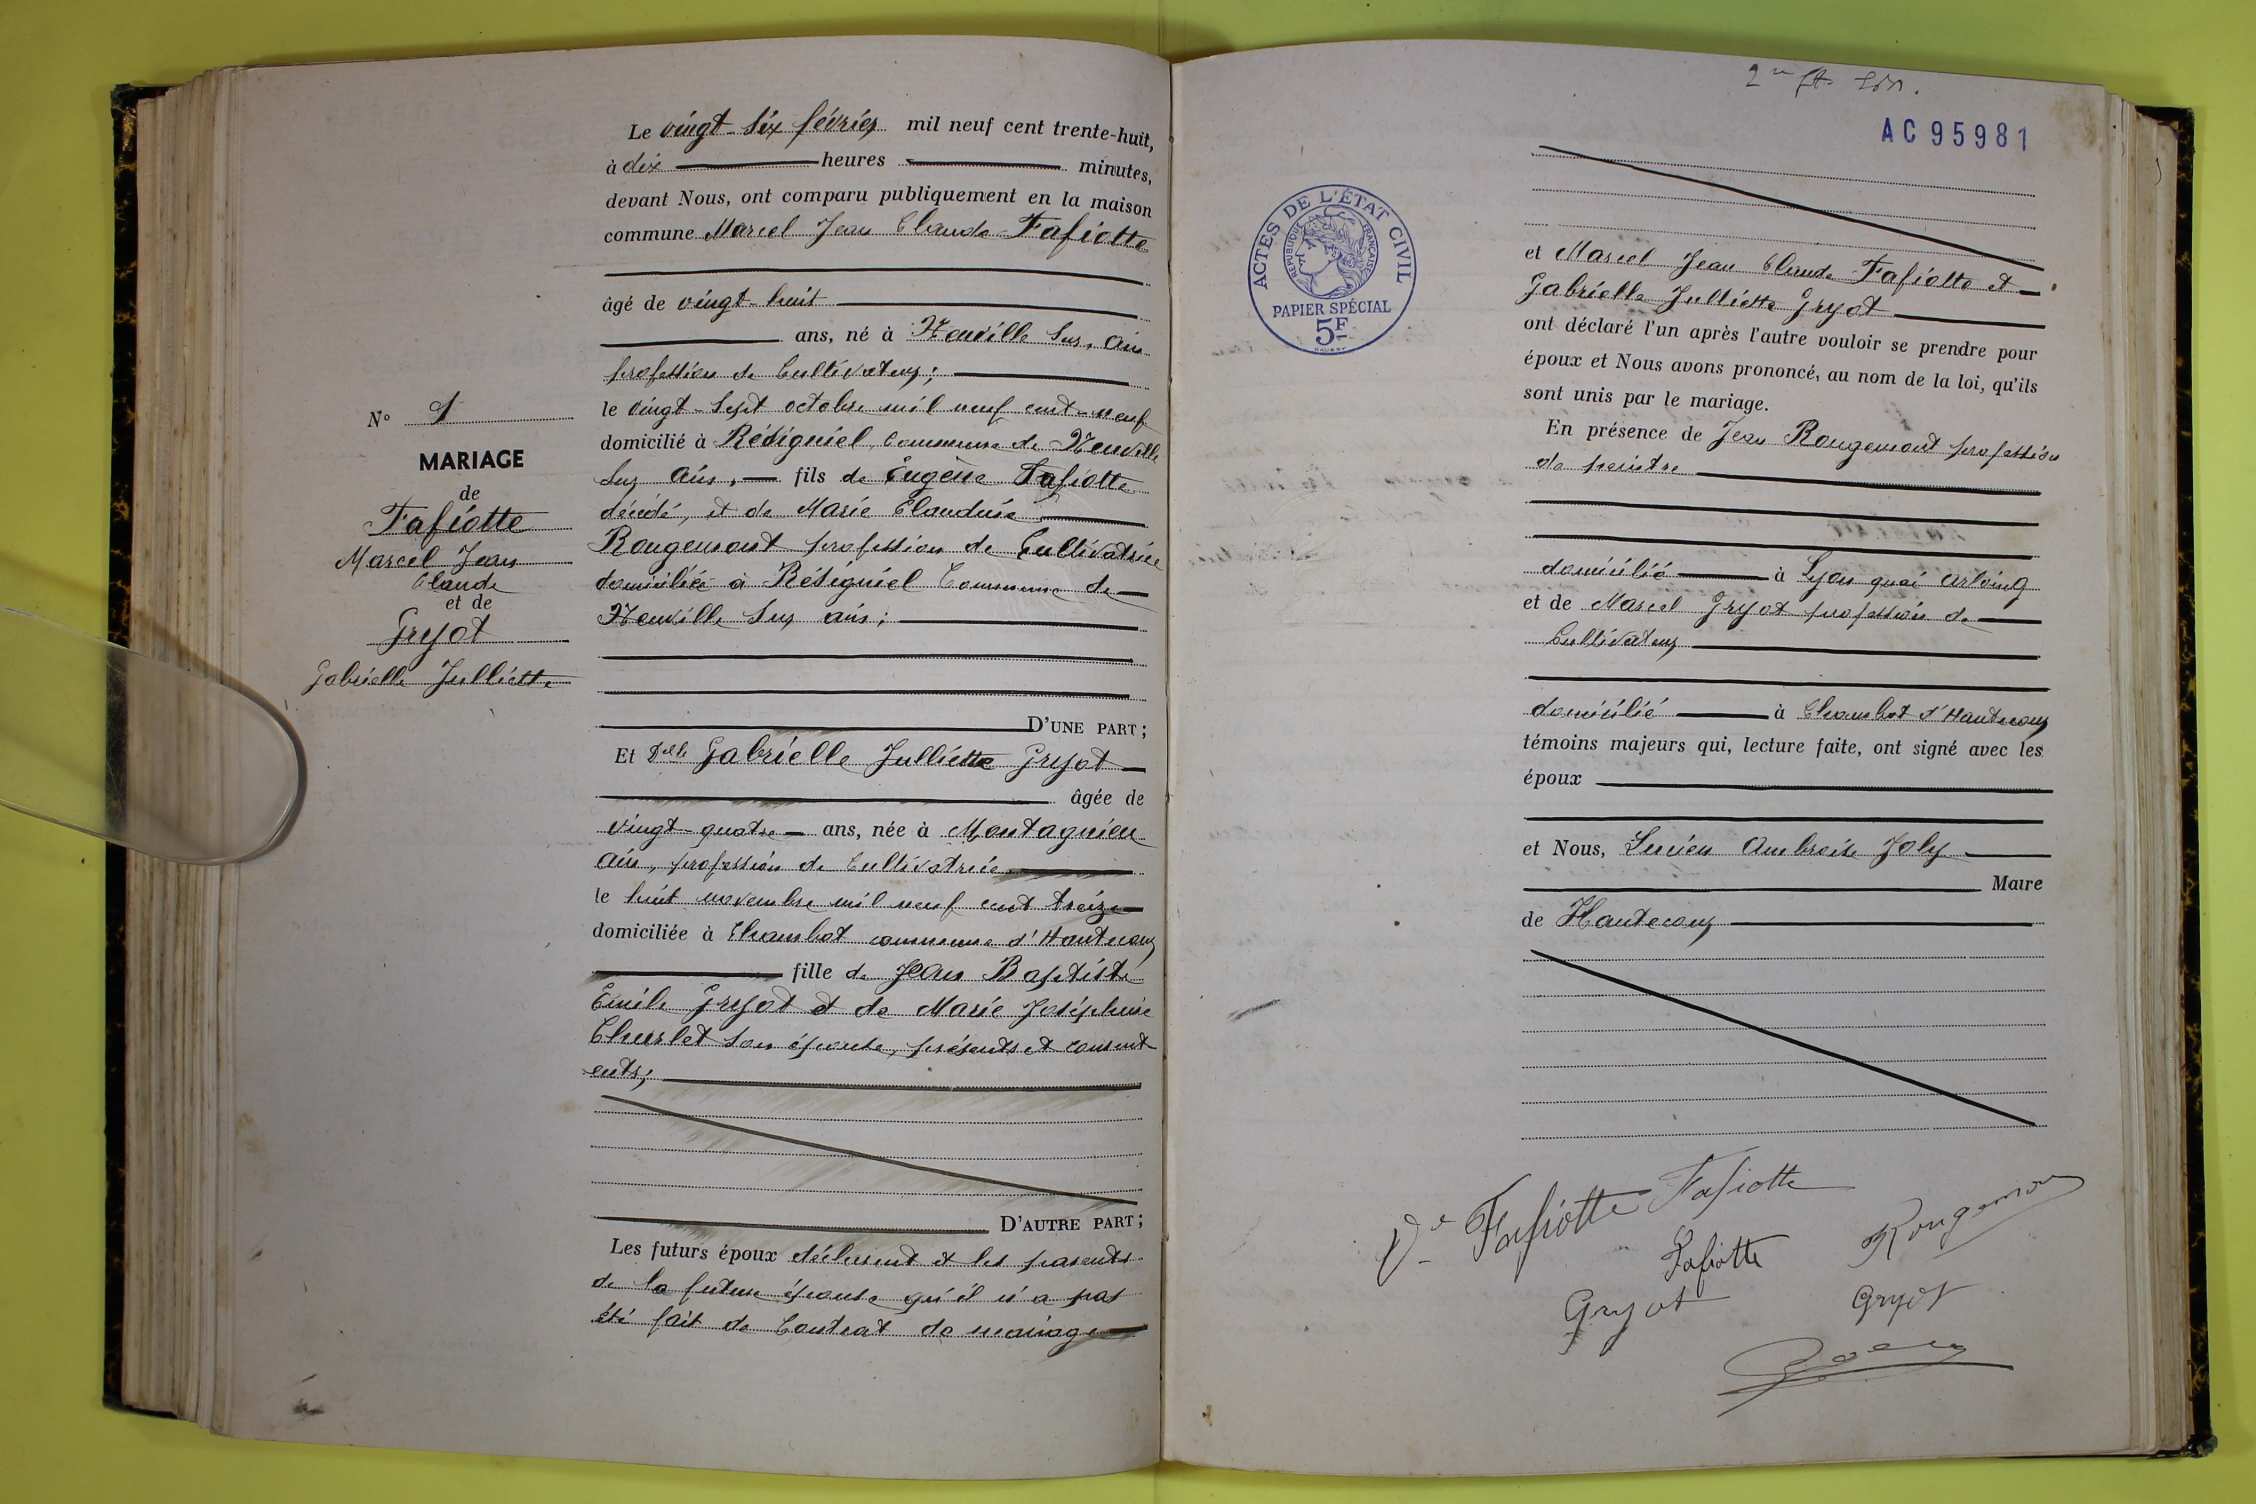 Le vingt-six février mil neuf cent trente-huit,
à dix heures minutes,
devant Nous, ont comparu publiquement en la maison
commune Marcel Jean Claude Fafiotte
âgé de vingt-huit
ans, né à Neuville sur Ain
profession de Cultivateur;
le vingt-sept octobre mil neuf cent-neuf
domicilié à Résigniel, Commune de Neuville
sur Ain, fils de Eugène Fafiotte
décédé, et de Marie Claudine
Rougemont profession de Cultivatrice
domiciliée à Résigniel Commune de
Neuville sur ain;
D'UNE PART;
Et Delle Gabrielle Julliette Gryot
âgée de
vingt-quatre ans, née à Montagnieu
Ain, profession de Cultivatrice
le huit novembre mil neuf cent treize
domiciliée à Chambot commune d'Hautecour
fille de Jean Baptiste
Emile Gryot et de Marie Joséphine
son épouse, présents et consent
ents;
D'AUTRE PART;
Les futurs époux déclarent et les parents
de la future épouse qu'il n'a pas
été fait de Contrat de mariage
N° 1
MARIAGE
de
Fafiotte
Marcel Jean
Claude
et de
Gryot
Gabrielle Julliette
AC95981
ACTES DE L'ÉTAT CIVIL
RÉPUBLIQUE FRANÇAISE
PAPIER SPÉCIAL
5F
et Marcel Jean Claude Fafiotte et
Gabrielle Julliette Gryot
ont déclaré l'un après l'autre vouloir se prendre pour
époux et Nous avons prononcé, au nom de la loi, qu'ils
sont unis par le mariage.
En présence de Jean Rougemont profession
de peintre
domicilié à Lyon quai Arloing
et de Marcel Gryot profession de
Cultivateur
domicilié à Chambot d'Hautecour
témoins majeurs qui, lecture faite, ont signé avec les
époux
et Nous, Lucien Ambroise Joly
Maire
de Hautecour
Ve Fafiotte Fafiotte
Fafiotte Rougemont
Gryot Gryot